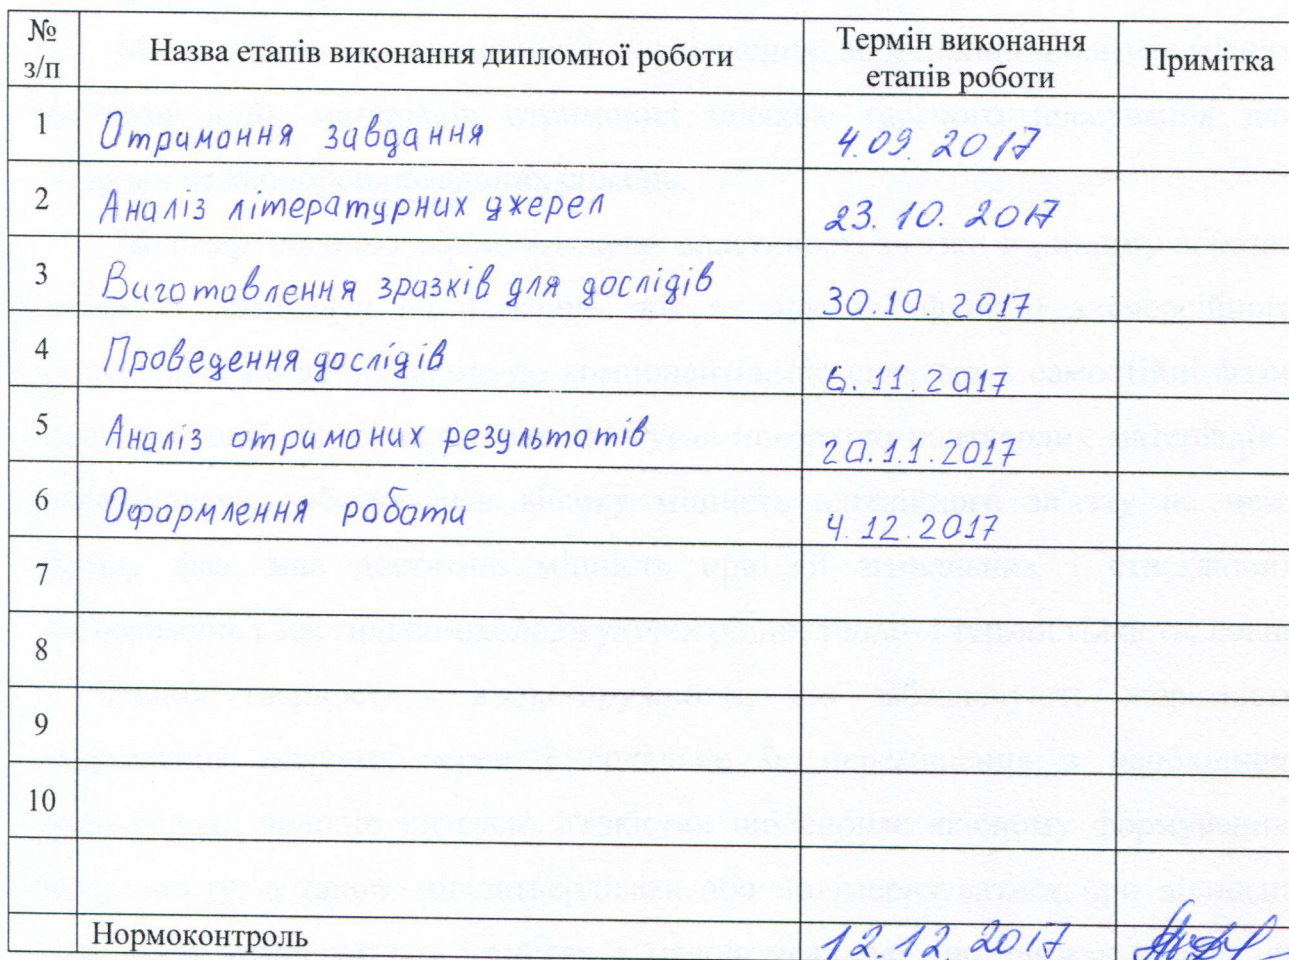 № з/п Назва етапів виконання дипломної роботи Термін виконання етапів роботи Примітка
1 Отримання завдання 4.09.2017
2 Аналіз літературних джерел 23.10.2017
3 Виготовлення зразків для дослідів 30.10.2017
4 Проведення дослідів 6.11.2017
5 Аналіз отриманих результатів 20.11.2017
6 Оформлення роботи 4.12.2017
7
8
9
10
Нормоконтроль 12.12.2017